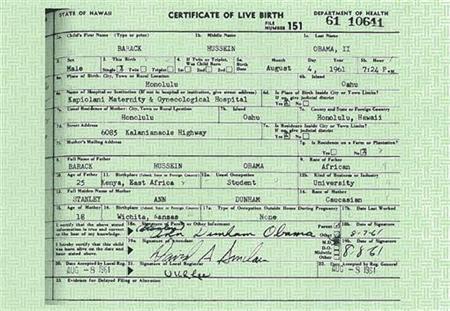 STATE OF HAWAII
CERTIFICATE OF LIVE BIRTH
DEPARTMENT OF HEALTH
FILE NUMBER 151
61 10641
1a. Child's First Name (Type or print)
1b. Middle Name
1c. Last Name
BARACK HUSSEIN OBAMA, II
2. Sex
3. This Birth
4. If Twin or Triplet, Was Child Born
5a. Birth Date
Month Day Year
5b. Hour
Male Single Twin Triplet
August 4, 1961 7:24 P.M.
6a. Place of Birth: City, Town or Rural Location
6b. Island
Honolulu Oahu
6c. Name of Hospital or Institution (If not in hospital or institution, give street address)
6d. Is Place of Birth Inside City or Town Limits?
If no, give judicial district
Kapiolani Maternity & Gynecological Hospital
Yes No
7a. Usual Residence of Mother: City, Town or Rural Location
7b. Island
7c. County and State or Foreign Country
Honolulu Oahu Honolulu, Hawaii
7d. Street Address
7e. Is Residence Inside City or Town Limits?
If no, give judicial district
6085 Kalanianaole Highway
Yes No
7f. Mother's Mailing Address
7g. Is Residence on a Farm or Plantation?
Yes No
8. Full Name of Father
9. Race of Father
BARACK HUSSEIN OBAMA African
10. Age of Father
11. Birthplace (Island, State or Foreign Country)
12a. Usual Occupation
12b. Kind of Business or Industry
25 Kenya, East Africa Student University
13. Full Maiden Name of Mother
14. Race of Mother
STANLEY ANN DUNHAM Caucasian
15. Age of Mother
16. Birthplace (Island, State or Foreign Country)
17a. Type of Occupation Outside Home During Pregnancy
17b. Date Last Worked
18 Wichita, Kansas None
I certify that the above stated information is true and correct to the best of my knowledge.
18a. Signature of Parent or Other Informant
Parent
Other
18b. Date of Signature
(Stanley) Ann Dunham Obama
8-7-61
I hereby certify that this child was born alive on the date and hour stated above.
19a. Signature of Attendant
M.D.
D.O.
Midwife
Other
19b. Date of Signature
David A Sinclair
8-8-61
20. Date Accepted by Local Reg.
21. Signature of Local Registrar
22. Date Accepted by Reg. General
AUG -8 1961
AUG -8 1961
23. Evidence for Delayed Filing or Alteration